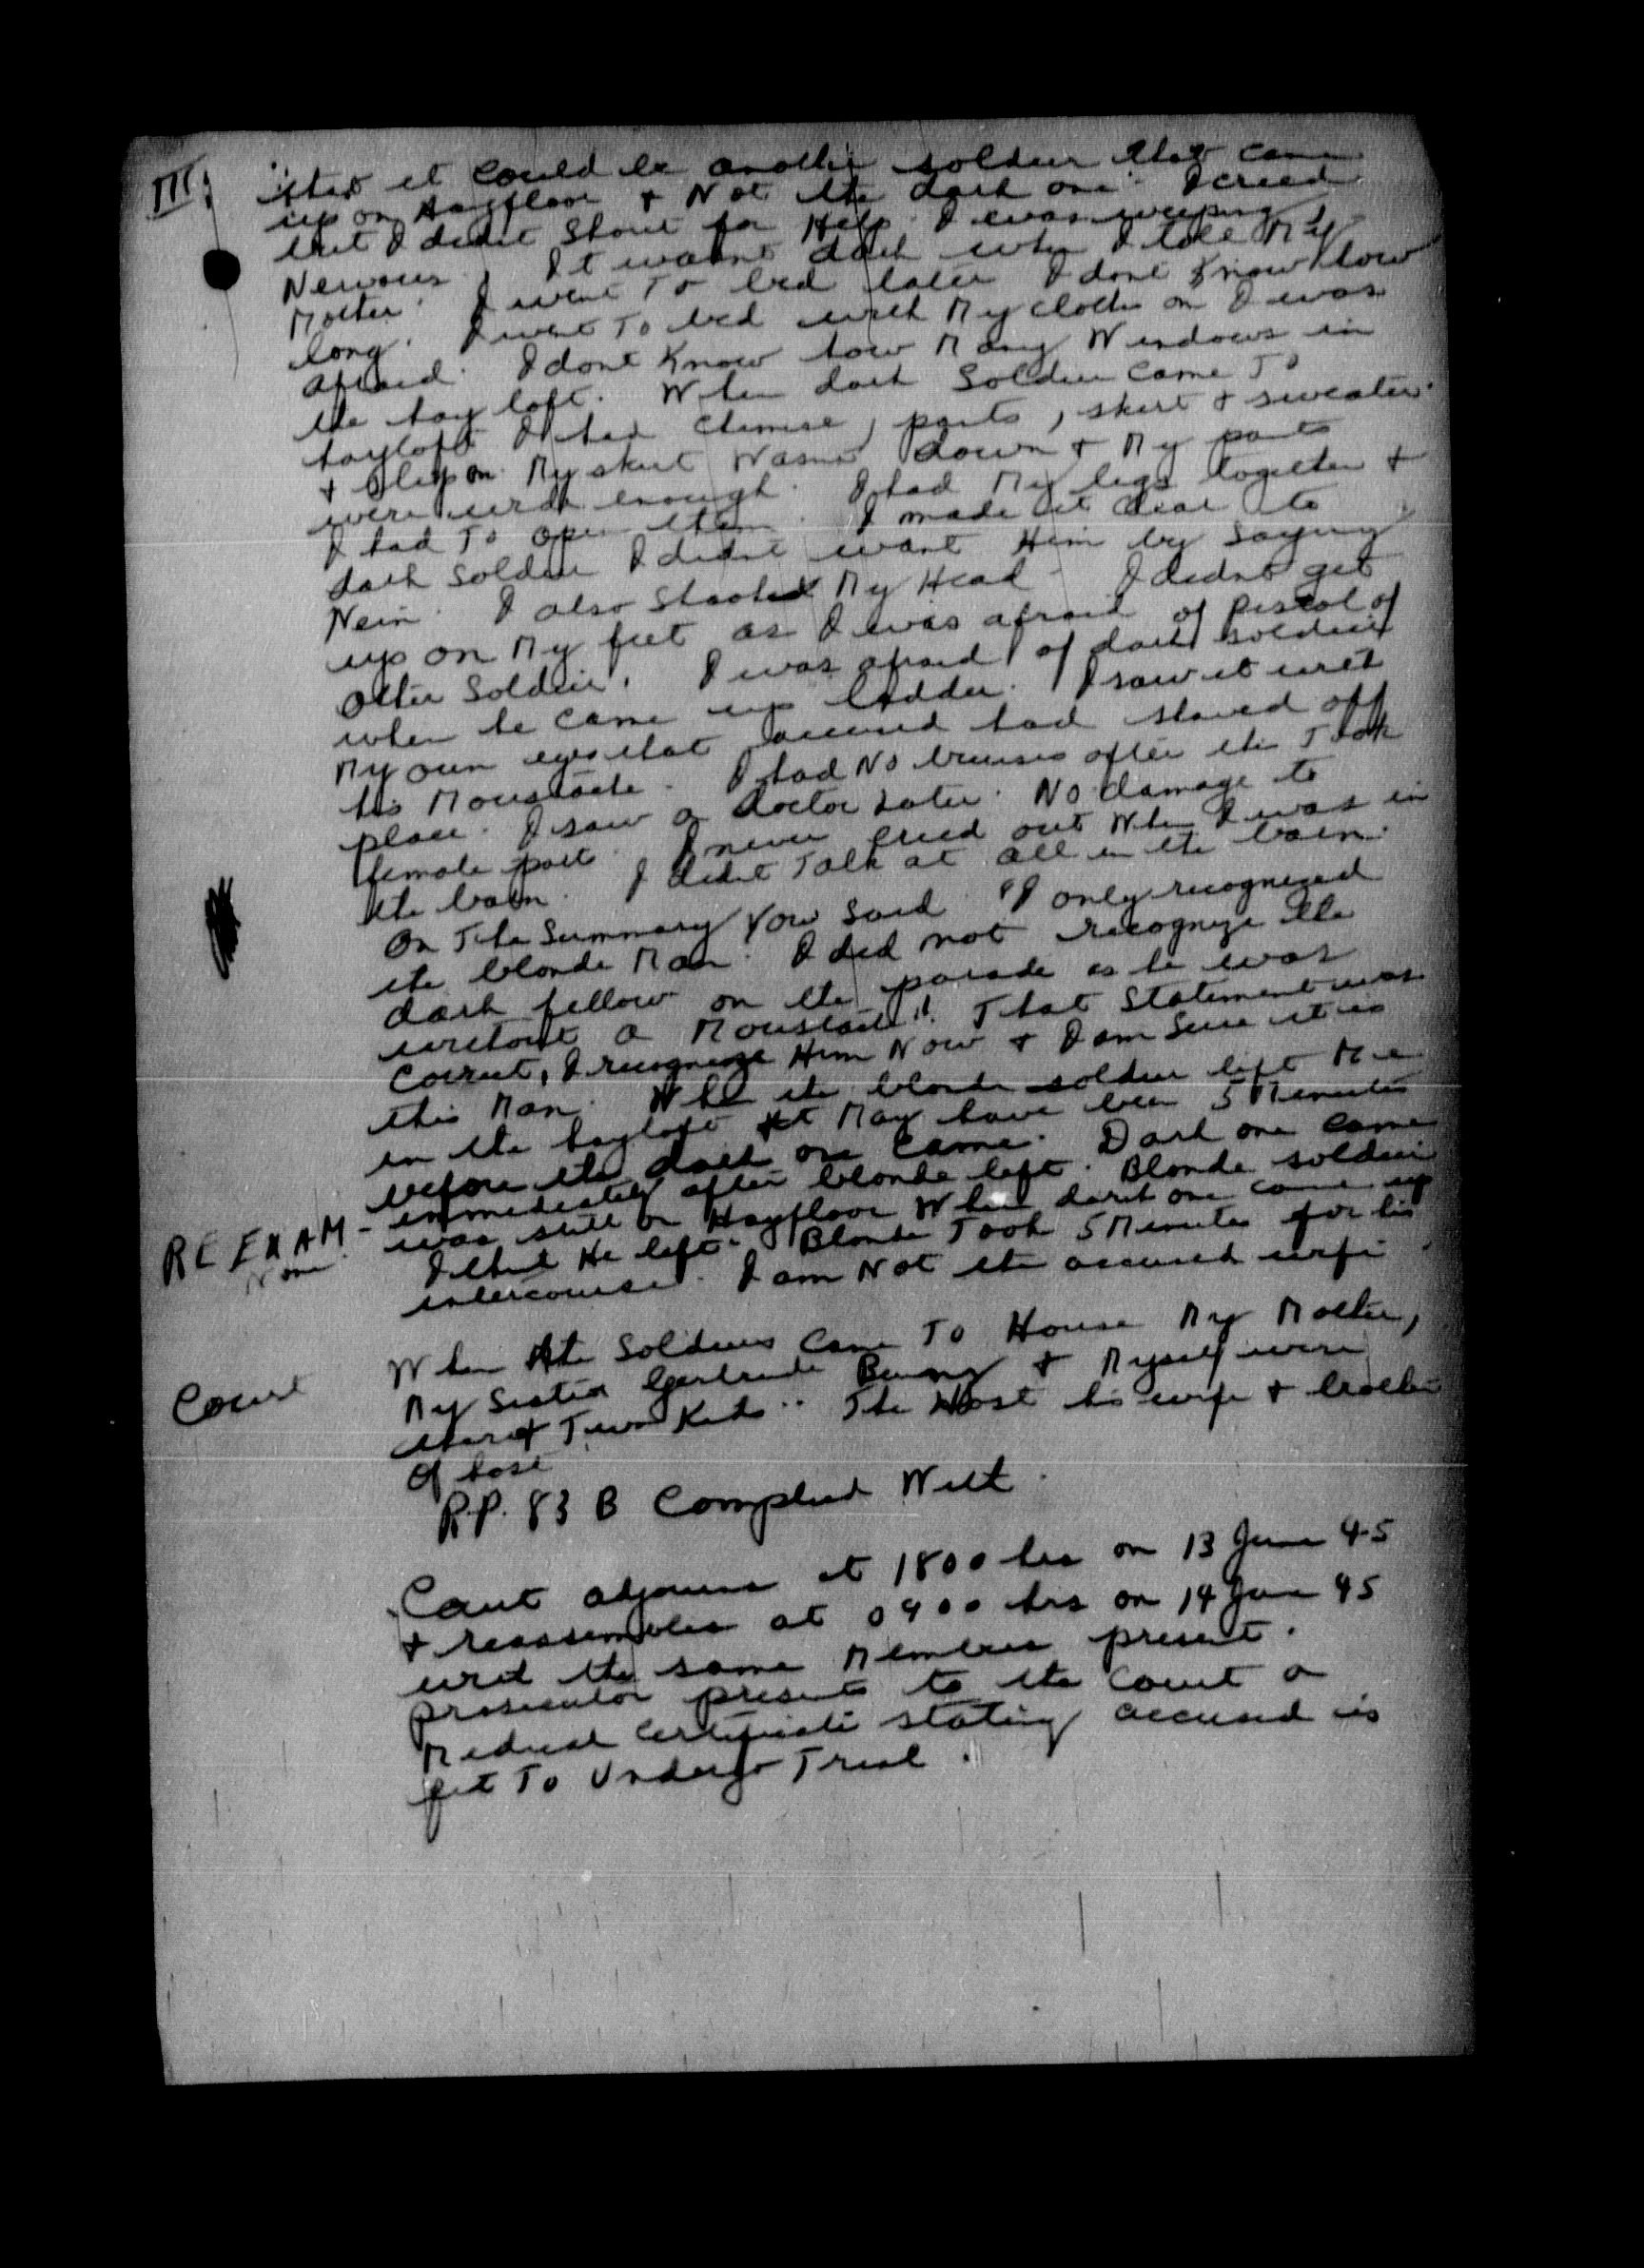 III.
that it could be another soldier that came
up on Hayfloor & Not the dark one. I cried
but I didnt shout for Help. I was weeping &
Nervous. It wasnt dark when I told My
Mother. I went To bed later I dont Know How
long. I went To bed with My clothes on I was
afraid. I dont Know how Many Windows in
the hay loft. When dark Soldier came To
hayloft I had chemise, pants, skirt & sweater
& slip on. My skirt Wasnt down & My pants
were wide enough. I had My legs together &
I had To open them. I made it clear to
dark soldier I didnt want Him by saying
Nein. I also shook My Head. I didnt get
up on My feet as I was afraid of pistol of
other Soldier. I was afraid of dark soldier
when he came up ladder. I saw it with
My own eyes that accused had shaved off
his Moustache. I had No bruises after this Took
place. I saw a doctor later. No damage to
female part. I never cried out When I was in
the barn. I didnt Talk at all in the barn.
On The Summary You Said "I only recognized
the blonde Man. I did not recognize the
dark fellow on the parade as he was
without a Moustache". That Statement was
correct, I recognize Him Now & I am Sure it is
this Man. When the blonde soldier left Me
in the hayloft it May have been 5 Minutes
before the dark one came. Dark one came
immediately after blonde left. Blonde soldier
was still on Hayfloor When dark one came up
RE EXAM - None
then He left. Blonde Took 5 Minutes for his
intercourse. I am Not the accused wife
Court
When the Soldiers Came To House My Mother,
My Sister Gertrude & Myself were
there & Two Kids. The Host his wife & brother
of host
R.P. 83 B Complied With.
Court adjourns at 1800 hrs on 13 June 45
& reassembles at 0900 hrs on 14 June 45
with the same Members present.
Prosecutor presents to the Court a
Medical Certificate stating accused is
fit To Undergo Trial.